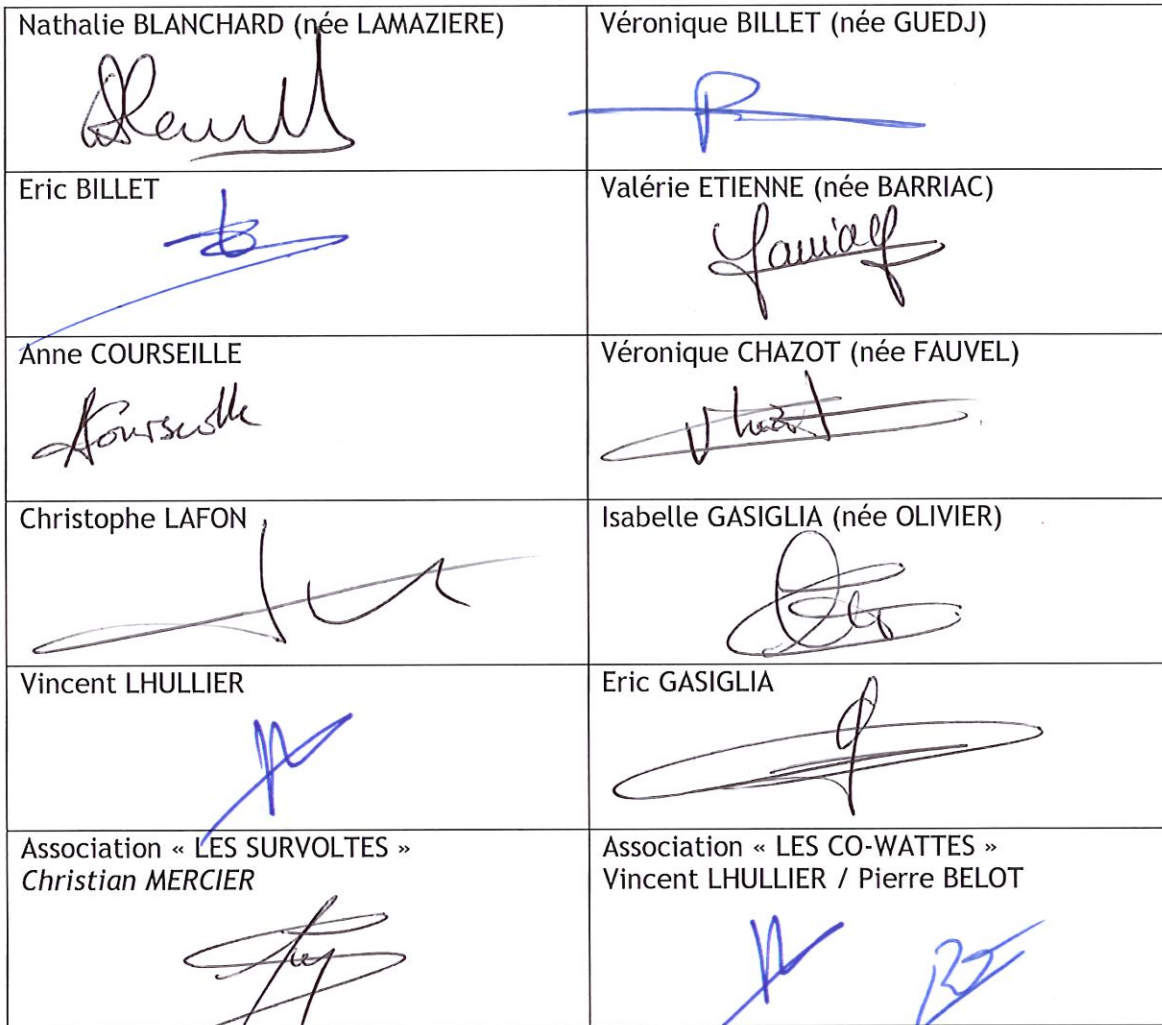 Nathalie BLANCHARD (née LAMAZIERE)
Véronique BILLET (née GUEDJ)
Eric BILLET
Valérie ETIENNE (née BARRIAC)
Anne COURSEILLE
Véronique CHAZOT (née FAUVEL)
Christophe LAFON
Isabelle GASIGLIA (née OLIVIER)
Vincent LHULLIER
Eric GASIGLIA
Association « LES SURVOLTES »
Christian MERCIER
Association « LES CO-WATTES »
Vincent LHULLIER / Pierre BELOT